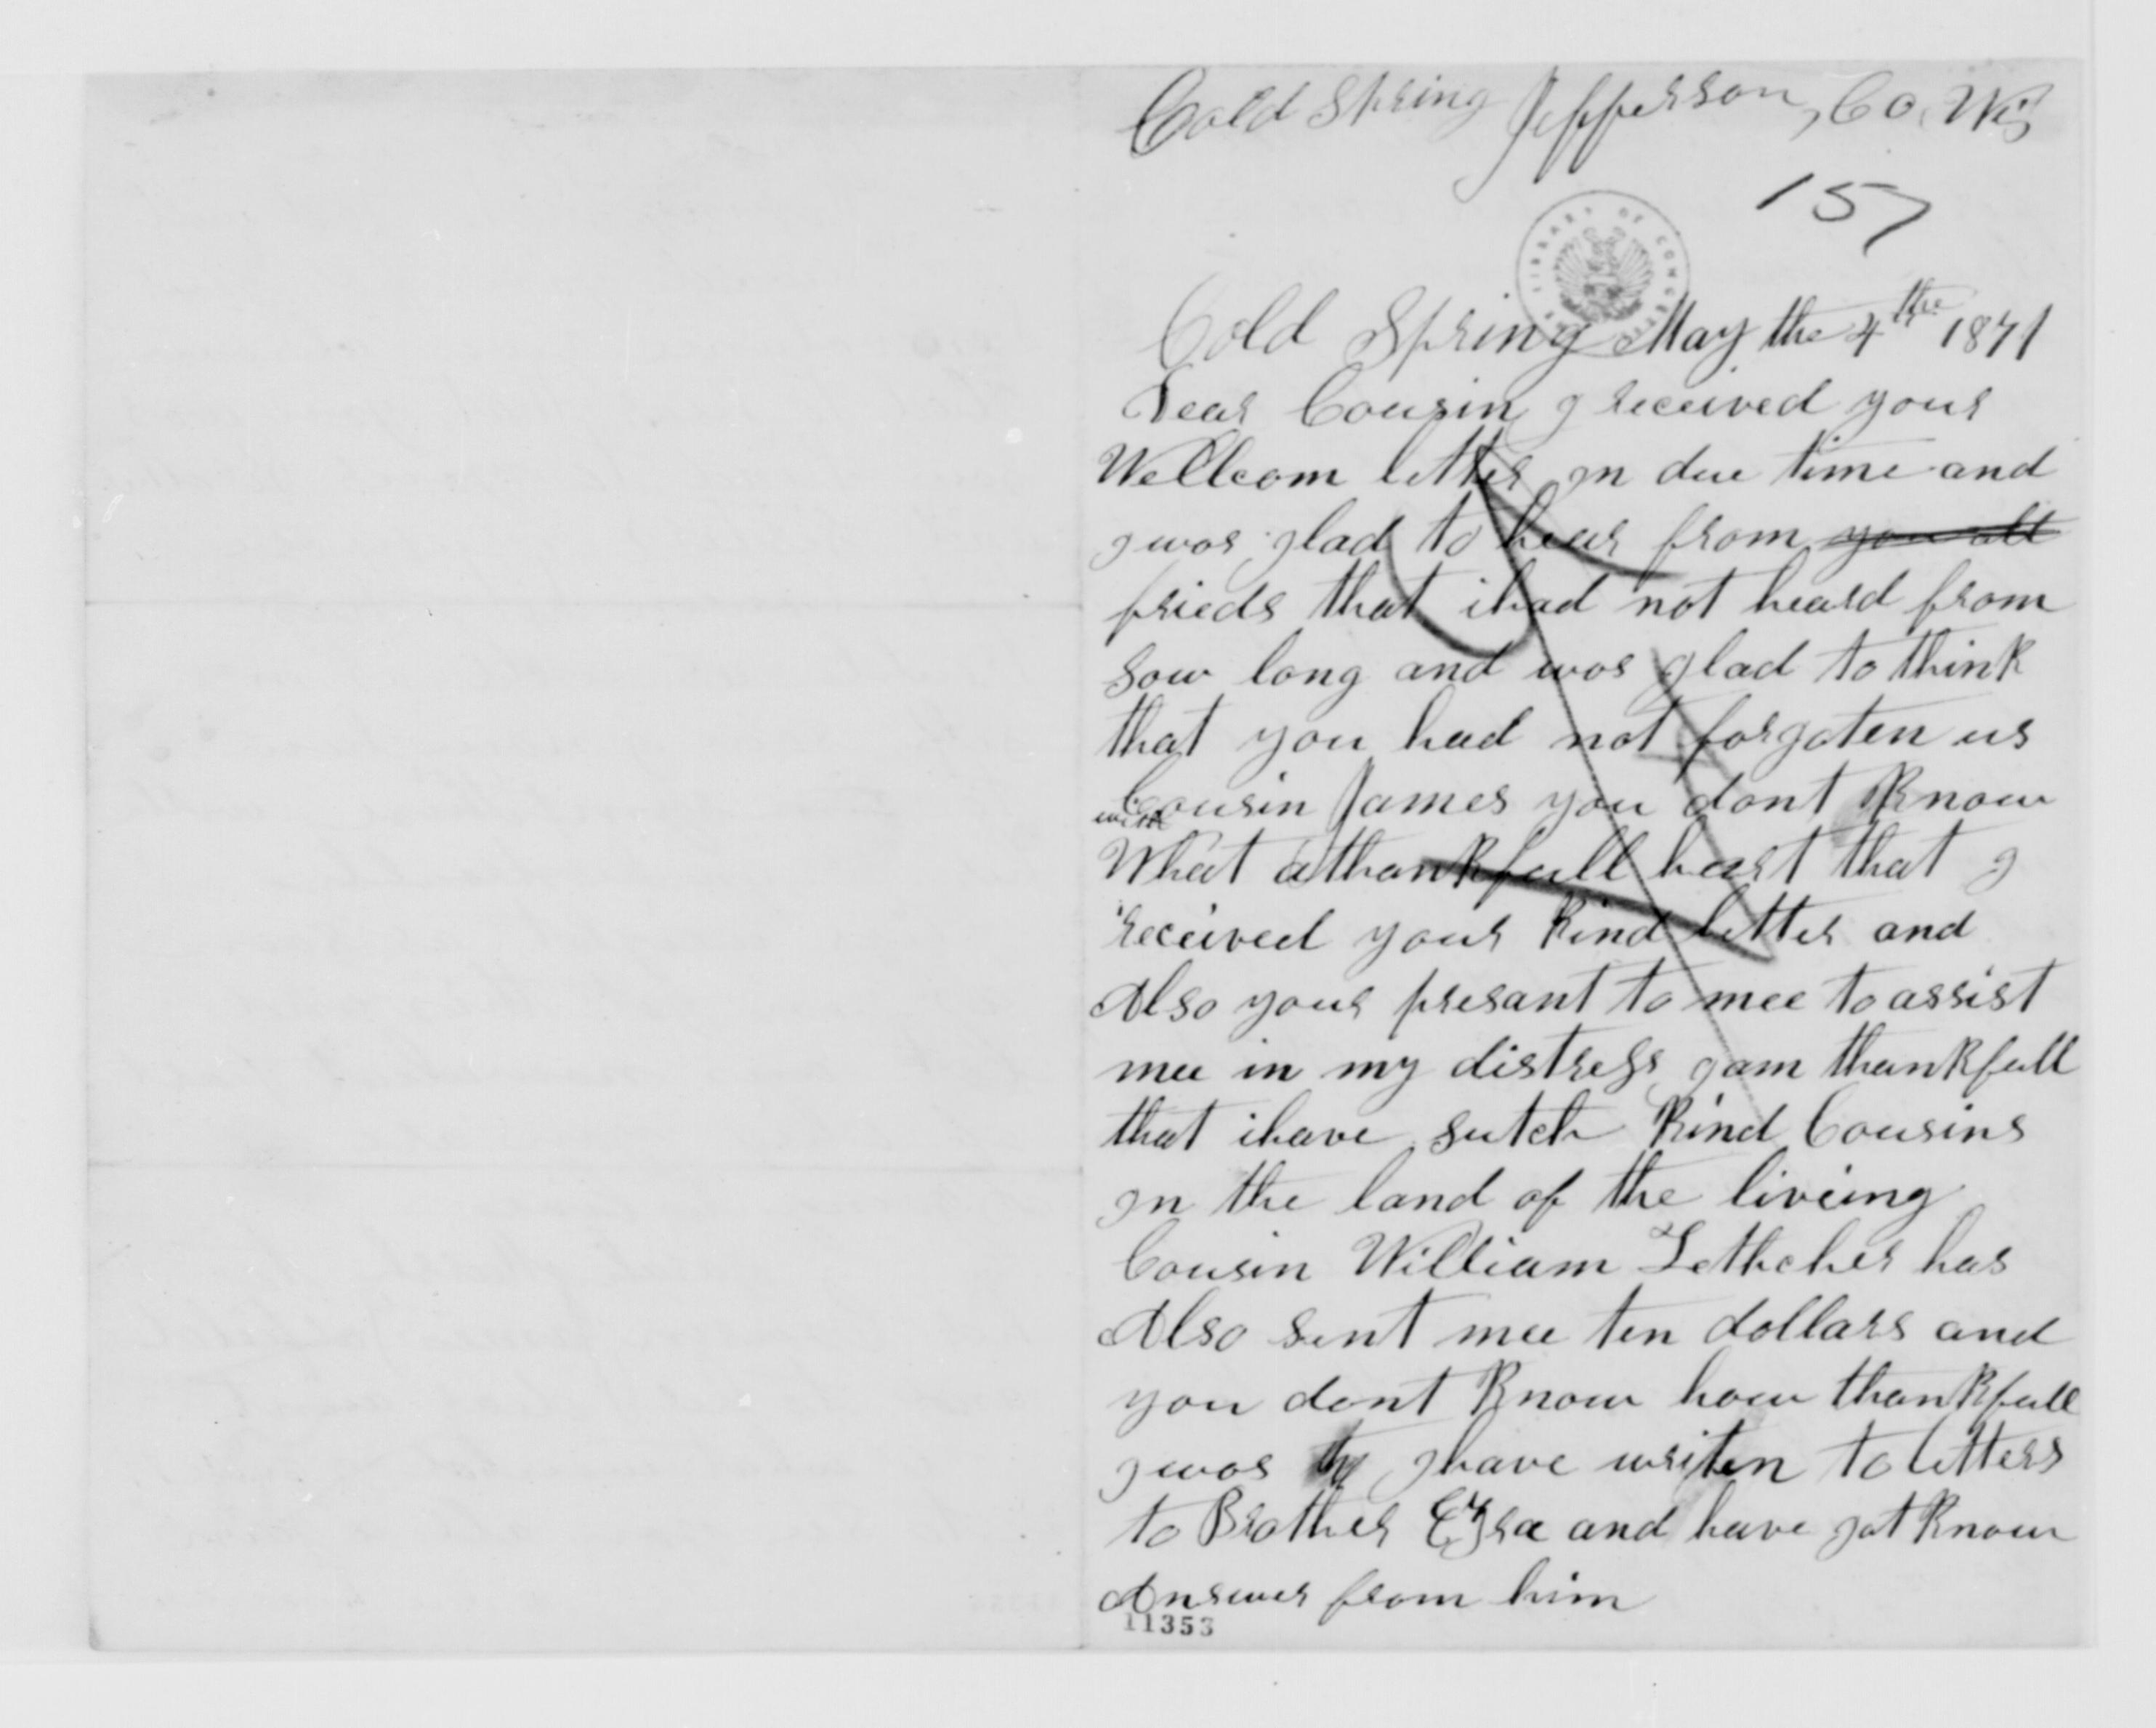 Cold Spring Jefferson, Co, Wis
157
LIBRARY OF CONGRESS
Cold Spring May the 4the 1871
Dear Cousin I received your
Wellcom letter In due time and
I was glad to hear from you all
frieds that ihad not heard from
sow long and was glad to think
that you had not forgoten us
Cousin James you dont Know
with
What a thankfull heart that I
received your Kind letter and
Also your presant to mee to assist
mee in my distress I am thankfull
that ihave sutch Kind Cousins
In the land of the liveing
Cousin William Lethcher has
Also sent mee ten dollars and
you dont Know how thankfull
I was I have writen to letters
to Brother Ezra and have got Know
Answer from him
11353